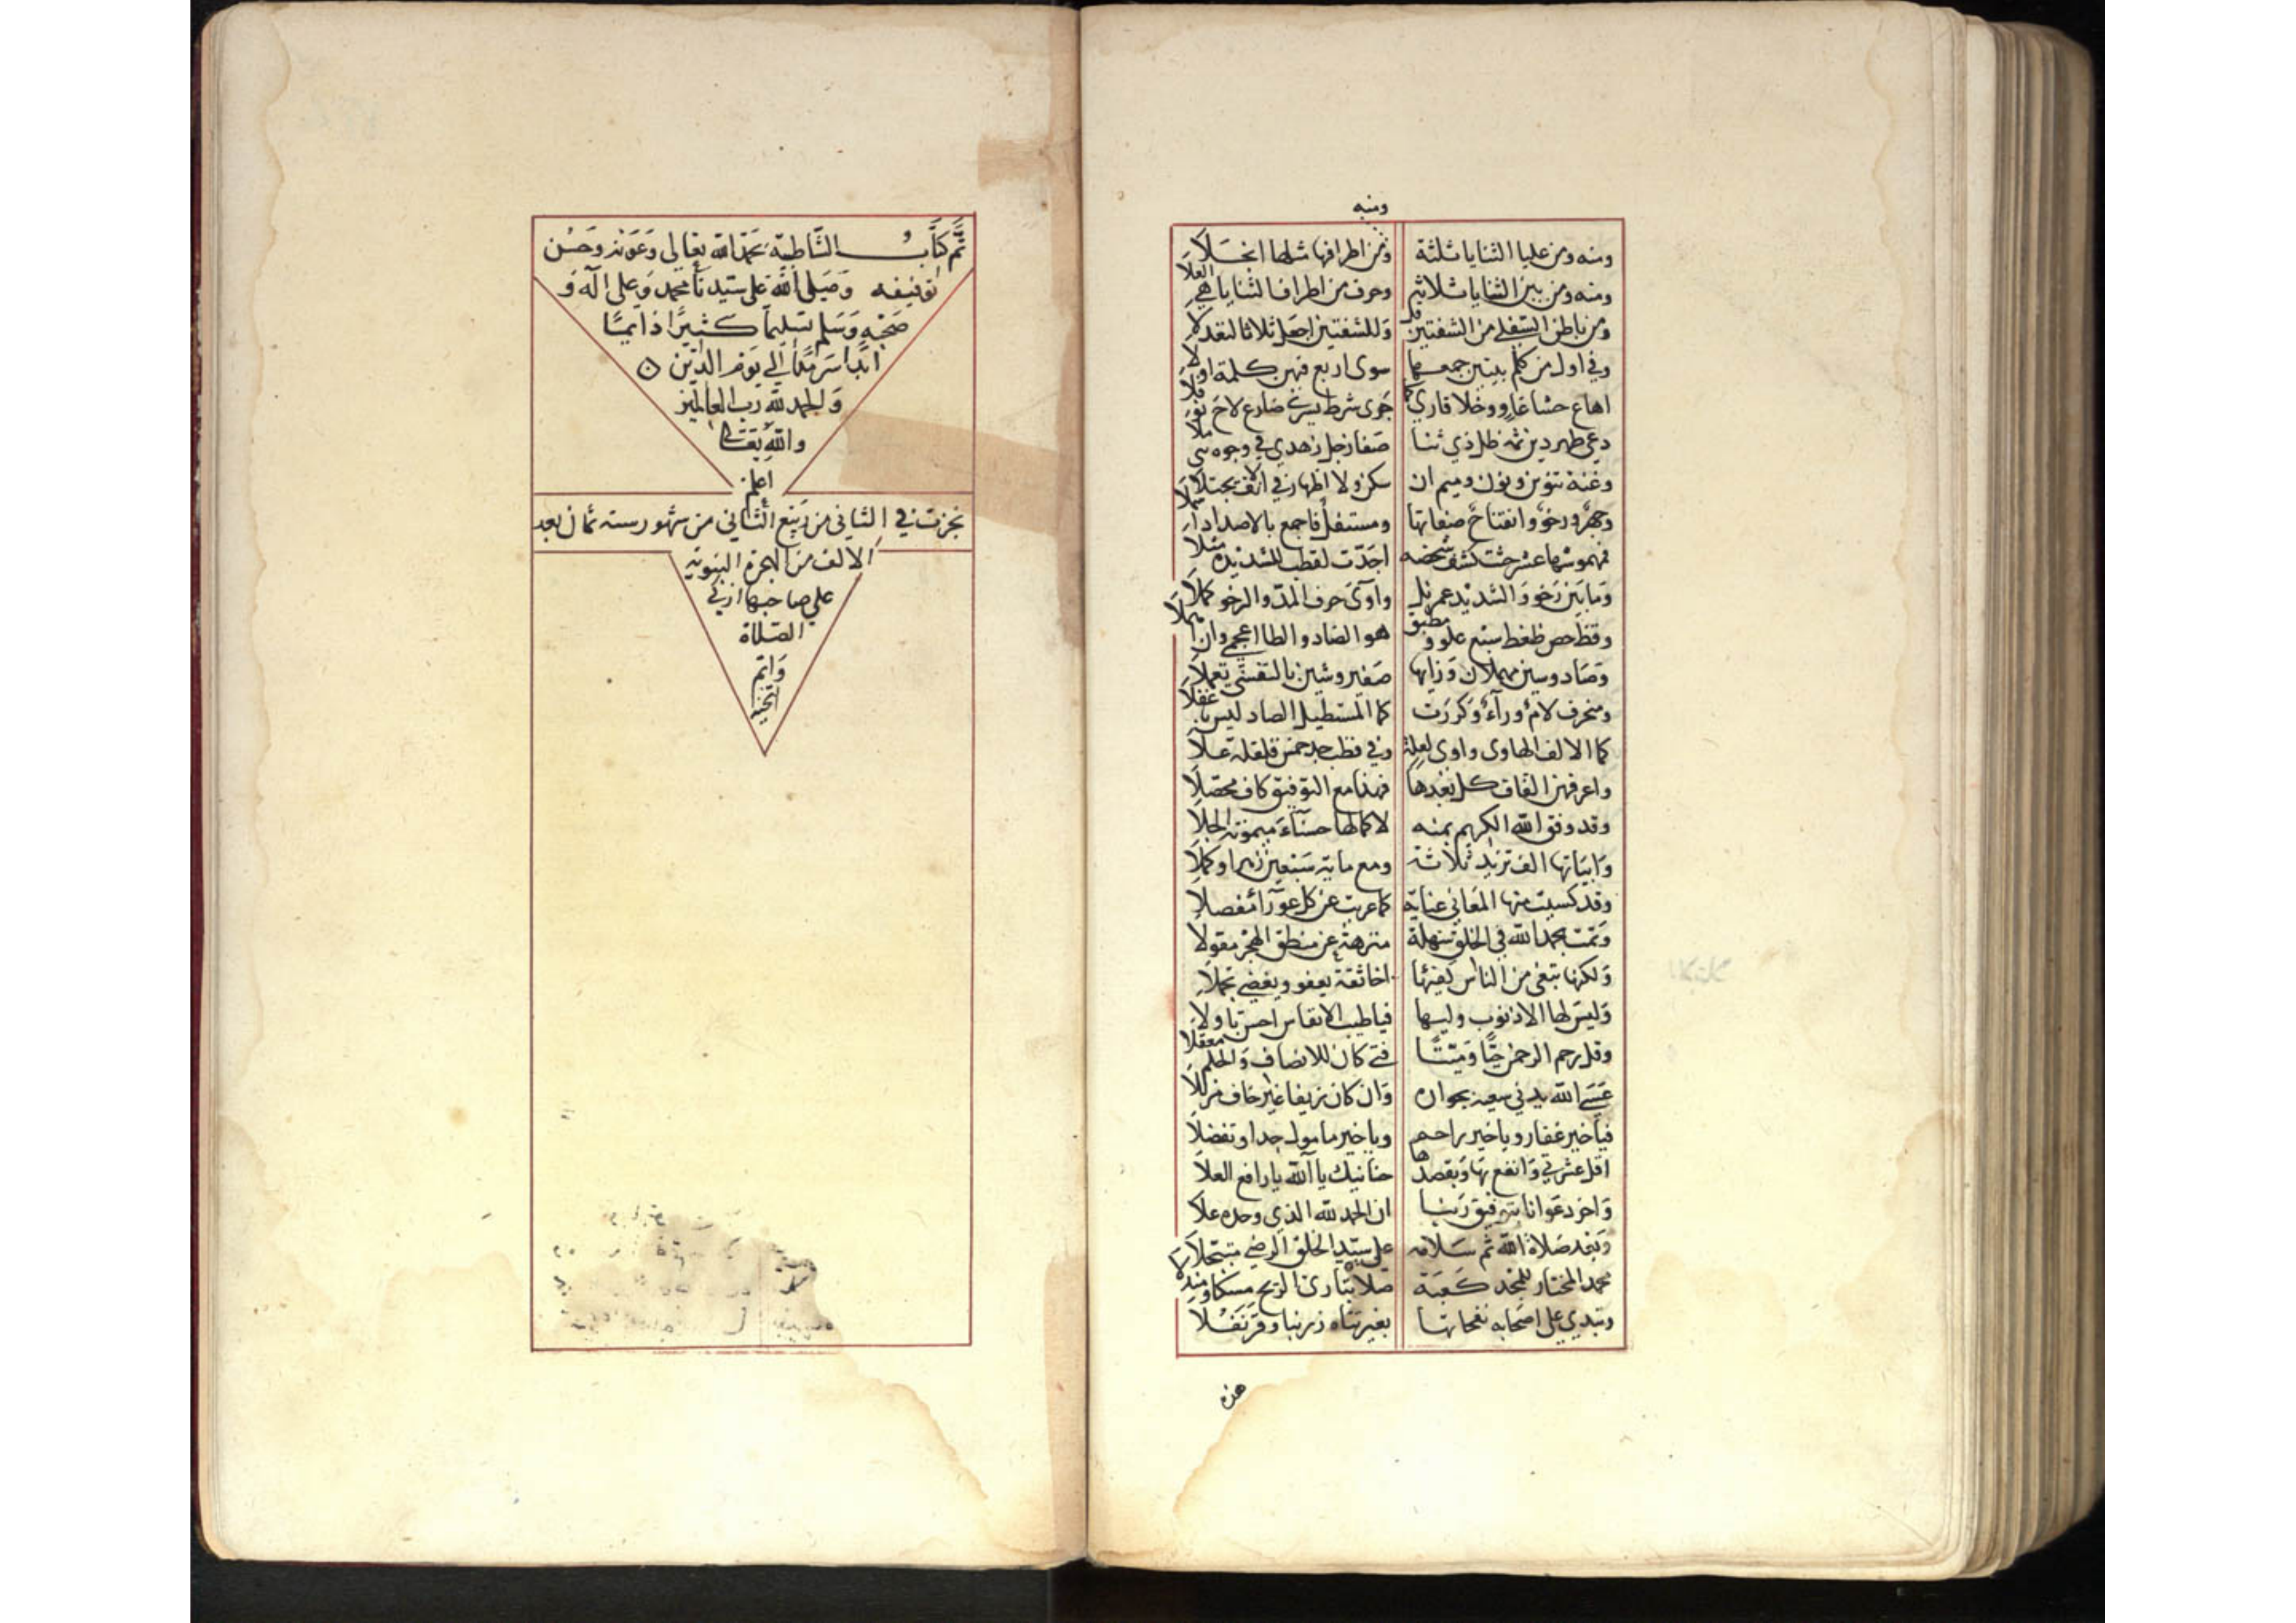 ومنه
ومنه ومن عليا الثنايا ثلثة ومن اطرافها مثلها انجلا
ومنه ومن بين الثنايا ثلاثة وحرف من اطراف الثنايا هي العلا
ومن باطن السفلى من الشفتين قل وللشفتين اجعل ثلاثا لتعدلا
وفي اول من كلم بيتين جمعها سوى اربع فيهن كلمة اولا
اهاع حشا غاو وخلا قاري كما جرى شرط يسرى ضارع لاح نوفلا
رعى طهر دين تمه ظل ذي ثنا صفا زجل زهد في وجوه بني ملا
وغنة تنوين ونون وميم ان سكن ولا اظهار في الانف يجتلا
وجهر ورخو وانفتاح صفاتها ومستفل فاجمع بالاضداد اشملا
فمهموسها عشر حثت كسف شخصه اجدت لقطب للشديدة مثلا
وما بين رخو والشديد عمر نل وواى حرف المد والرخو كملا
وقظ خص ضغط سبع علو ومطبق هو الضاد والظا اعجم وان اهملا
وصاد وسين مهملان وزايها صفير وشين بالتفشي تعملا
ومنحرف لام وراء وكررت كما المستطيل الضاد ليس باغفلا
كما الالف الهاوى واوى لعلة وفي قطب جد خمس قلقلة علا
واعرفهن القاف كل يعدها فهذا مع التوفيق كاف محصلا
وقد وفق الله الكريم بمنه لاكمالها حسناء ميمونة الجلا
وابياتها الف تزيد ثلاثة ومع ماية سبعين زهرا وكملا
وقد كسيت منها المعاني عناية كما عريت عن كل عوراء مفصلا
وتمت بحمد الله في الخلق سهلة منزهة عن منطق الهجر مقولا
ولكنها تبغي من الناس كفئها اخا ثقة يعفو ويغضي تجملا
وليس لها الا ذنوب وليها فيا طيب الانفاس احسن تاولا
وقل رحم الرحمن حيا وميتا فتى كان للانصاف والحلم معقلا
عسى الله يدني سعيه بجوازه وان كان زيفا غير خاف مزللا
فيا خير غفار ويا خير راحم ويا خير مامول جدا وتفضلا
اقل عثرتي وانفع بها وبقصدها حنانيك يا الله يا رافع العلا
واخر دعوانا بتوفيق ربنا ان الحمد لله الذي وحده علا
وبعد صلاة الله ثم سلامه على سيد الخلق الرضي متنخلا
محمد المختار للمجد كعبة صلاة تباري الريح مسكا ومندلا
وتبدي على اصحابه نفحاتها بغير تناه زرنبا وقرنفلا
هذه
تم كتاب الشاطبية بحمد الله تعالى وعونه وحسن
توفيقه وصلى الله على سيدنا محمد وعلى آله و
صحبه وسلم تسليما كثيرا دائما
ابدا سرمدا الى يوم الدين
والحمد لله رب العالمين
والله تعالى
اعلم
نجزت في الثاني من ربيع الثاني من شهور سنة ثمان بعد
الالف من الهجرة النبوية
على صاحبها ازكى
الصلاة
واتم
التحية